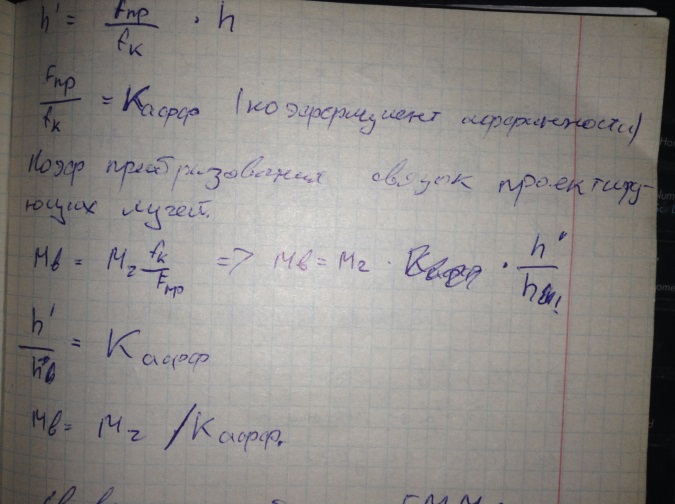 h' = Fпр/fк · h
Fпр/fк = Kафф (коэффициент аффинности)
Коэф преобразования связок проектиру-
ющих лучей.
Мв = Мг fк/Fпр => Мв = Мг · h'/h
h'/h = Kафф
Мв = Мг /Kафф.